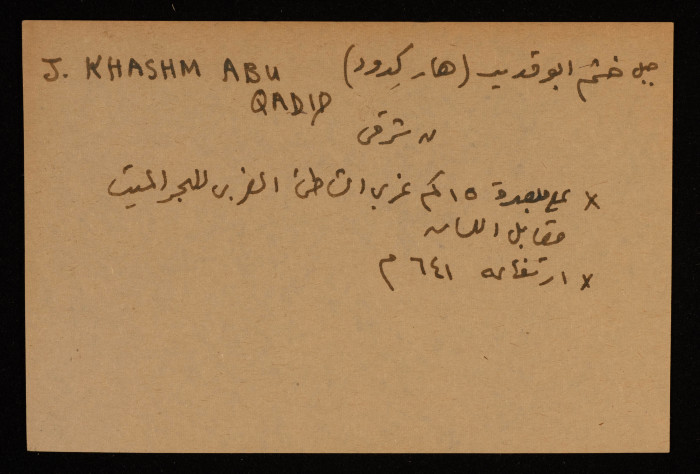 J. KHASHM ABU جبل خشم ابو قديد (هار كِدود)
QADID
شرقي
x على بعد ١٥ كم غربي الشاطئ الغربي للبحر الميت
مقابل اللسان
x ارتفاعه ٦٤١ م